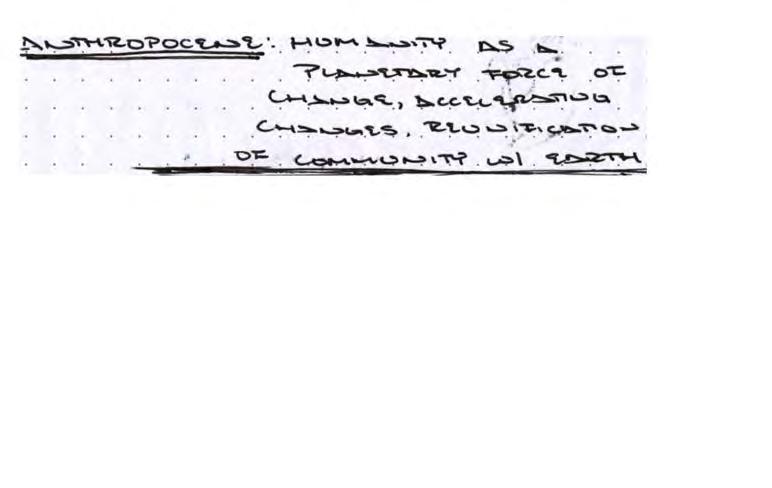 ANTHROPOCENE: HUMANITY AS A
PLANETARY FORCE OF
CHANGE, ACCELERATING
CHANGES, REUNIFICATION
OF COMMUNITY W/ EARTH